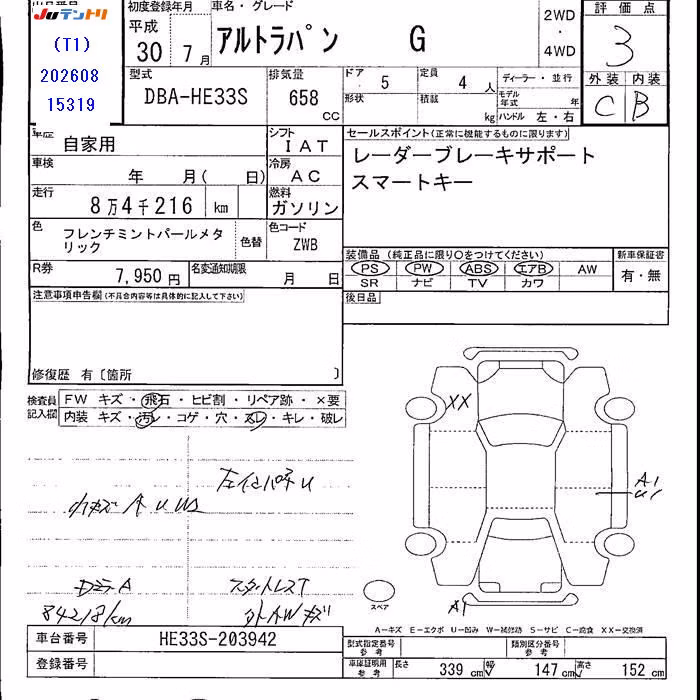 Juテントリ
(T1)
202608
15319
初度登録年月
平成
30年 7月
車名・グレード
アルトラパン G
2WD
・
4WD
評価点
3
外装 内装
C B
型式
DBA-HE33S
排気量
658
CC
ドア 5
定員 4人
形状
積載 kg
ディーラー・並行
モデル年式 年
ハンドル 左・右
車歴
自家用
シフト
IAT
車検
年 月( 日)
冷房
AC
走行
8万4千216 km
燃料
ガソリン
色
フレンチミントパールメタリック
色替
色コード
ZWB
R券
7,950円
名変通知期限
月 日
セールスポイント(正常に機能するものに限ります)
レーダーブレーキサポート
スマートキー
装備品(純正品に限り○をつけてください)
PS PW ABS エアB AW
SR ナビ TV カワ
新車保証書
有・無
後日品
注意事項申告欄(不具合内容等は具体的に記入して下さい)
修復歴 有〔箇所 〕
検査員
記入欄
FW キズ・飛石・ヒビ割・リペア跡・×要
内装 キズ・汚レ・コゲ・穴・スレ・キレ・破レ
小キズ A U
84218km
XX
A1
A1
スペア
A=キズ E=エクボ U=凹み W=補修跡 S=サビ C=腐食 XX=交換済
車台番号
HE33S-203942
登録番号
型式指定番号
参考
類別区分番号
参考
車庫証明用
参考
長さ 339cm
幅 147cm
高さ 152cm